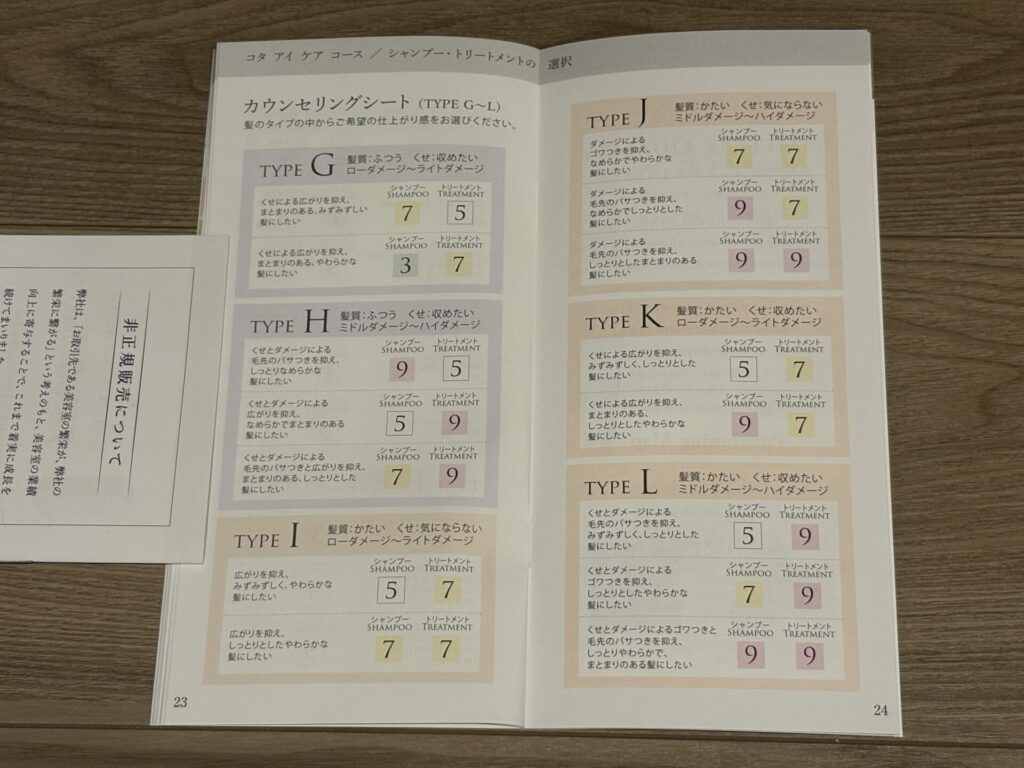 コタ アイ ケア コース / シャンプー・トリートメントの 選択
カウンセリングシート (TYPE G〜L)
髪のタイプの中からご希望の仕上がり感をお選びください。
TYPE G 髪質：ふつう くせ：収めたい
ローダメージ〜ライトダメージ
シャンプー トリートメント
SHAMPOO TREATMENT
くせによる広がりを抑え、
まとまりのある、みずみずしい
髪にしたい
7 5
シャンプー トリートメント
SHAMPOO TREATMENT
くせによる広がりを抑え、
まとまりのある、やわらかな
髪にしたい
3 7
TYPE H 髪質：ふつう くせ：収めたい
ミドルダメージ〜ハイダメージ
シャンプー トリートメント
SHAMPOO TREATMENT
くせとダメージによる
毛先のパサつきを抑え、
しっとりなめらかな
髪にしたい
9 5
シャンプー トリートメント
SHAMPOO TREATMENT
くせとダメージによる
広がりを抑え、
なめらかでまとまりのある
髪にしたい
5 9
シャンプー トリートメント
SHAMPOO TREATMENT
くせとダメージによる
毛先のパサつきと広がりを抑え、
まとまりのある、しっとりとした
髪にしたい
7 9
TYPE I 髪質：かたい くせ：気にならない
ローダメージ〜ライトダメージ
シャンプー トリートメント
SHAMPOO TREATMENT
広がりを抑え、
みずみずしく、やわらかな
髪にしたい
5 7
シャンプー トリートメント
SHAMPOO TREATMENT
広がりを抑え、
しっとりとしたやわらかな
髪にしたい
7 7
23
TYPE J 髪質：かたい くせ：気にならない
ミドルダメージ〜ハイダメージ
シャンプー トリートメント
SHAMPOO TREATMENT
ダメージによる
ゴワつきを抑え、
なめらかでやわらかな
髪にしたい
7 7
シャンプー トリートメント
SHAMPOO TREATMENT
ダメージによる
毛先のパサつきを抑え、
なめらかでしっとりとした
髪にしたい
9 7
シャンプー トリートメント
SHAMPOO TREATMENT
ダメージによる
毛先のパサつきを抑え、
しっとりとしたまとまりのある
髪にしたい
9 9
TYPE K 髪質：かたい くせ：収めたい
ローダメージ〜ライトダメージ
シャンプー トリートメント
SHAMPOO TREATMENT
くせによる広がりを抑え、
みずみずしく、しっとりとした
髪にしたい
5 7
シャンプー トリートメント
SHAMPOO TREATMENT
くせによる広がりを抑え、
まとまりのある、
しっとりとしたやわらかな
髪にしたい
9 7
TYPE L 髪質：かたい くせ：収めたい
ミドルダメージ〜ハイダメージ
シャンプー トリートメント
SHAMPOO TREATMENT
くせとダメージによる
毛先のパサつきを抑え、
みずみずしく、しっとりとした
髪にしたい
5 9
シャンプー トリートメント
SHAMPOO TREATMENT
くせとダメージによる
ゴワつきを抑え、
しっとりとしたやわらかな
髪にしたい
7 9
シャンプー トリートメント
SHAMPOO TREATMENT
くせとダメージによるゴワつきと
毛先のパサつきを抑え、
しっとりやわらかで、
まとまりのある髪にしたい
9 9
24
非正規販売について
弊社は、「お取引先である美容室の繁栄が、弊社の
繁栄に繋がる」という考えのもと、美容室の業績
向上に寄与することで、これまで着実に成長を
続けてまいりました。